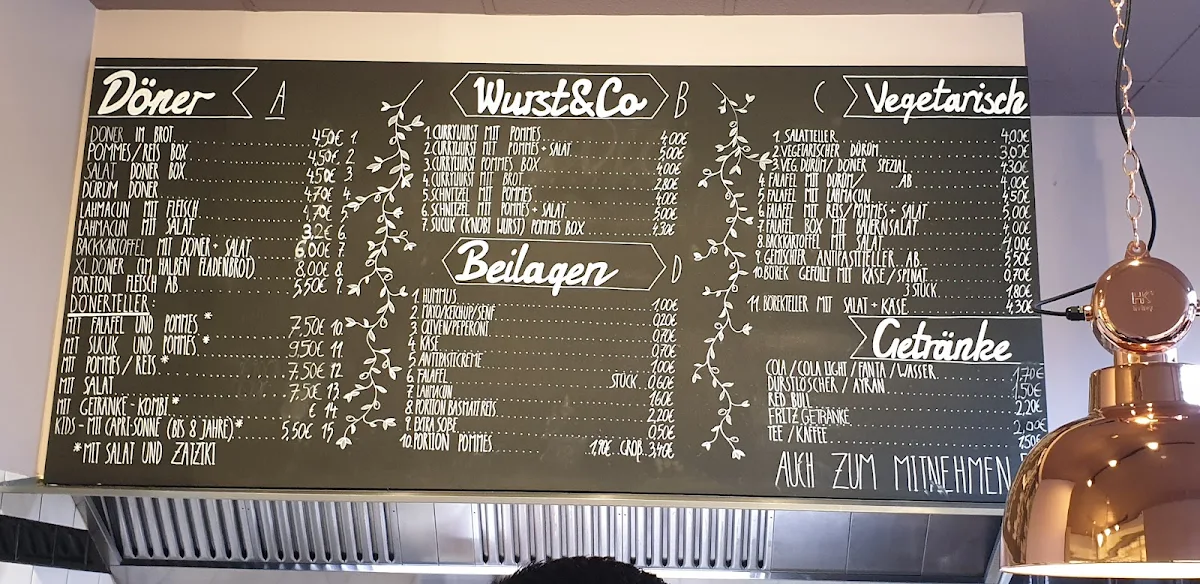 Döner A
DÖNER IM BROT 4,50€ 1.
POMMES/REIS BOX 4,50€ 2
SALAT DÖNER BOX 4,50€ 3
DÜRÜM DÖNER 4,70€ 4
LAHMACUN MIT FLEISCH 4,70€ 5
LAHMACUN MIT SALAT 3,2€ 6.
BACKKARTOFFEL MIT DÖNER + SALAT 6,00€ 7.
XL DÖNER (IM HALBEN FLADENBROT) 8,00€ 8.
PORTION FLEISCH AB 5,50€ 9.
DÖNERTELLER:
MIT FALAFEL UND POMMES * 7,50€ 10.
MIT SUCUK UND POMMES * 9,50€ 11.
MIT POMMES/REIS * 7,50€ 12
MIT SALAT 7,50€ 13
MIT GETRÄNKE-KOMBI * € 14
KIDS-MIT CAPRI-SONNE (BIS 8 JAHRE)* 5,50€ 15
*MIT SALAT UND ZATZIKI
Wurst&Co B
1. CURRYWURST MIT POMMES 4,00€
2. CURRYWURST MIT POMMES + SALAT 5,00€
3. CURRYWURST POMMES BOX 4,00€
4. CURRYWURST MIT BROT 2,80€
5. SCHNITZEL MIT POMMES 4,00€
6. SCHNITZEL MIT POMMES + SALAT 5,00€
7. SUCUK (KNOBI WURST) POMMES BOX 4,30€
Beilagen D
1. HUMMUS 1,00€
2. MAYO/KETCHUP/SENF 0,20€
3. OLIVEN/PEPERONI 0,70€
4. KÄSE 0,70€
5. ANTIPASTICREME 1,00€
6. FALAFEL STÜCK 0,60€
7. LAHMACUN 1,60€
8. PORTION BASMATI REIS 2,20€
9. EXTRA SOßE 0,50€
10. PORTION POMMES 1,90€ GROß 3,40€
C Vegetarisch
1. SALATTELLER 4,00€
2. VEGETARISCHER DÜRÜM 3,00€
3. VEG. DÜRÜM/ DÖNER SPEZIAL 4,30€
4. FALAFEL MIT DÜRÜM/ AB 4,00€
5. FALAFEL MIT LAHMACUN 4,50€
6. FALAFEL MIT REIS/POMMES + SALAT 5,00€
7. FALAFEL BOX MIT BAUERNSALAT 4,00€
8. BACKKARTOFFEL MIT SALAT 4,00€
9. GEMISCHTER ANTIPASTITELLER AB 5,50€
10. BÖREK GEFÜLLT MIT KÄSE/SPINAT 0,70€
3 STÜCK 1,80€
11. BÖREKTELLER MIT SALAT + KÄSE 4,30€
Getränke
COLA/COLA LIGHT/FANTA/WASSER 1,70€
DURSTLÖSCHER / AYRAN 1,50€
RED BULL 2,20€
FRITZ GETRÄNKE 2,00€
TEE/KAFFEE 1,50€
AUCH ZUM MITNEHMEN